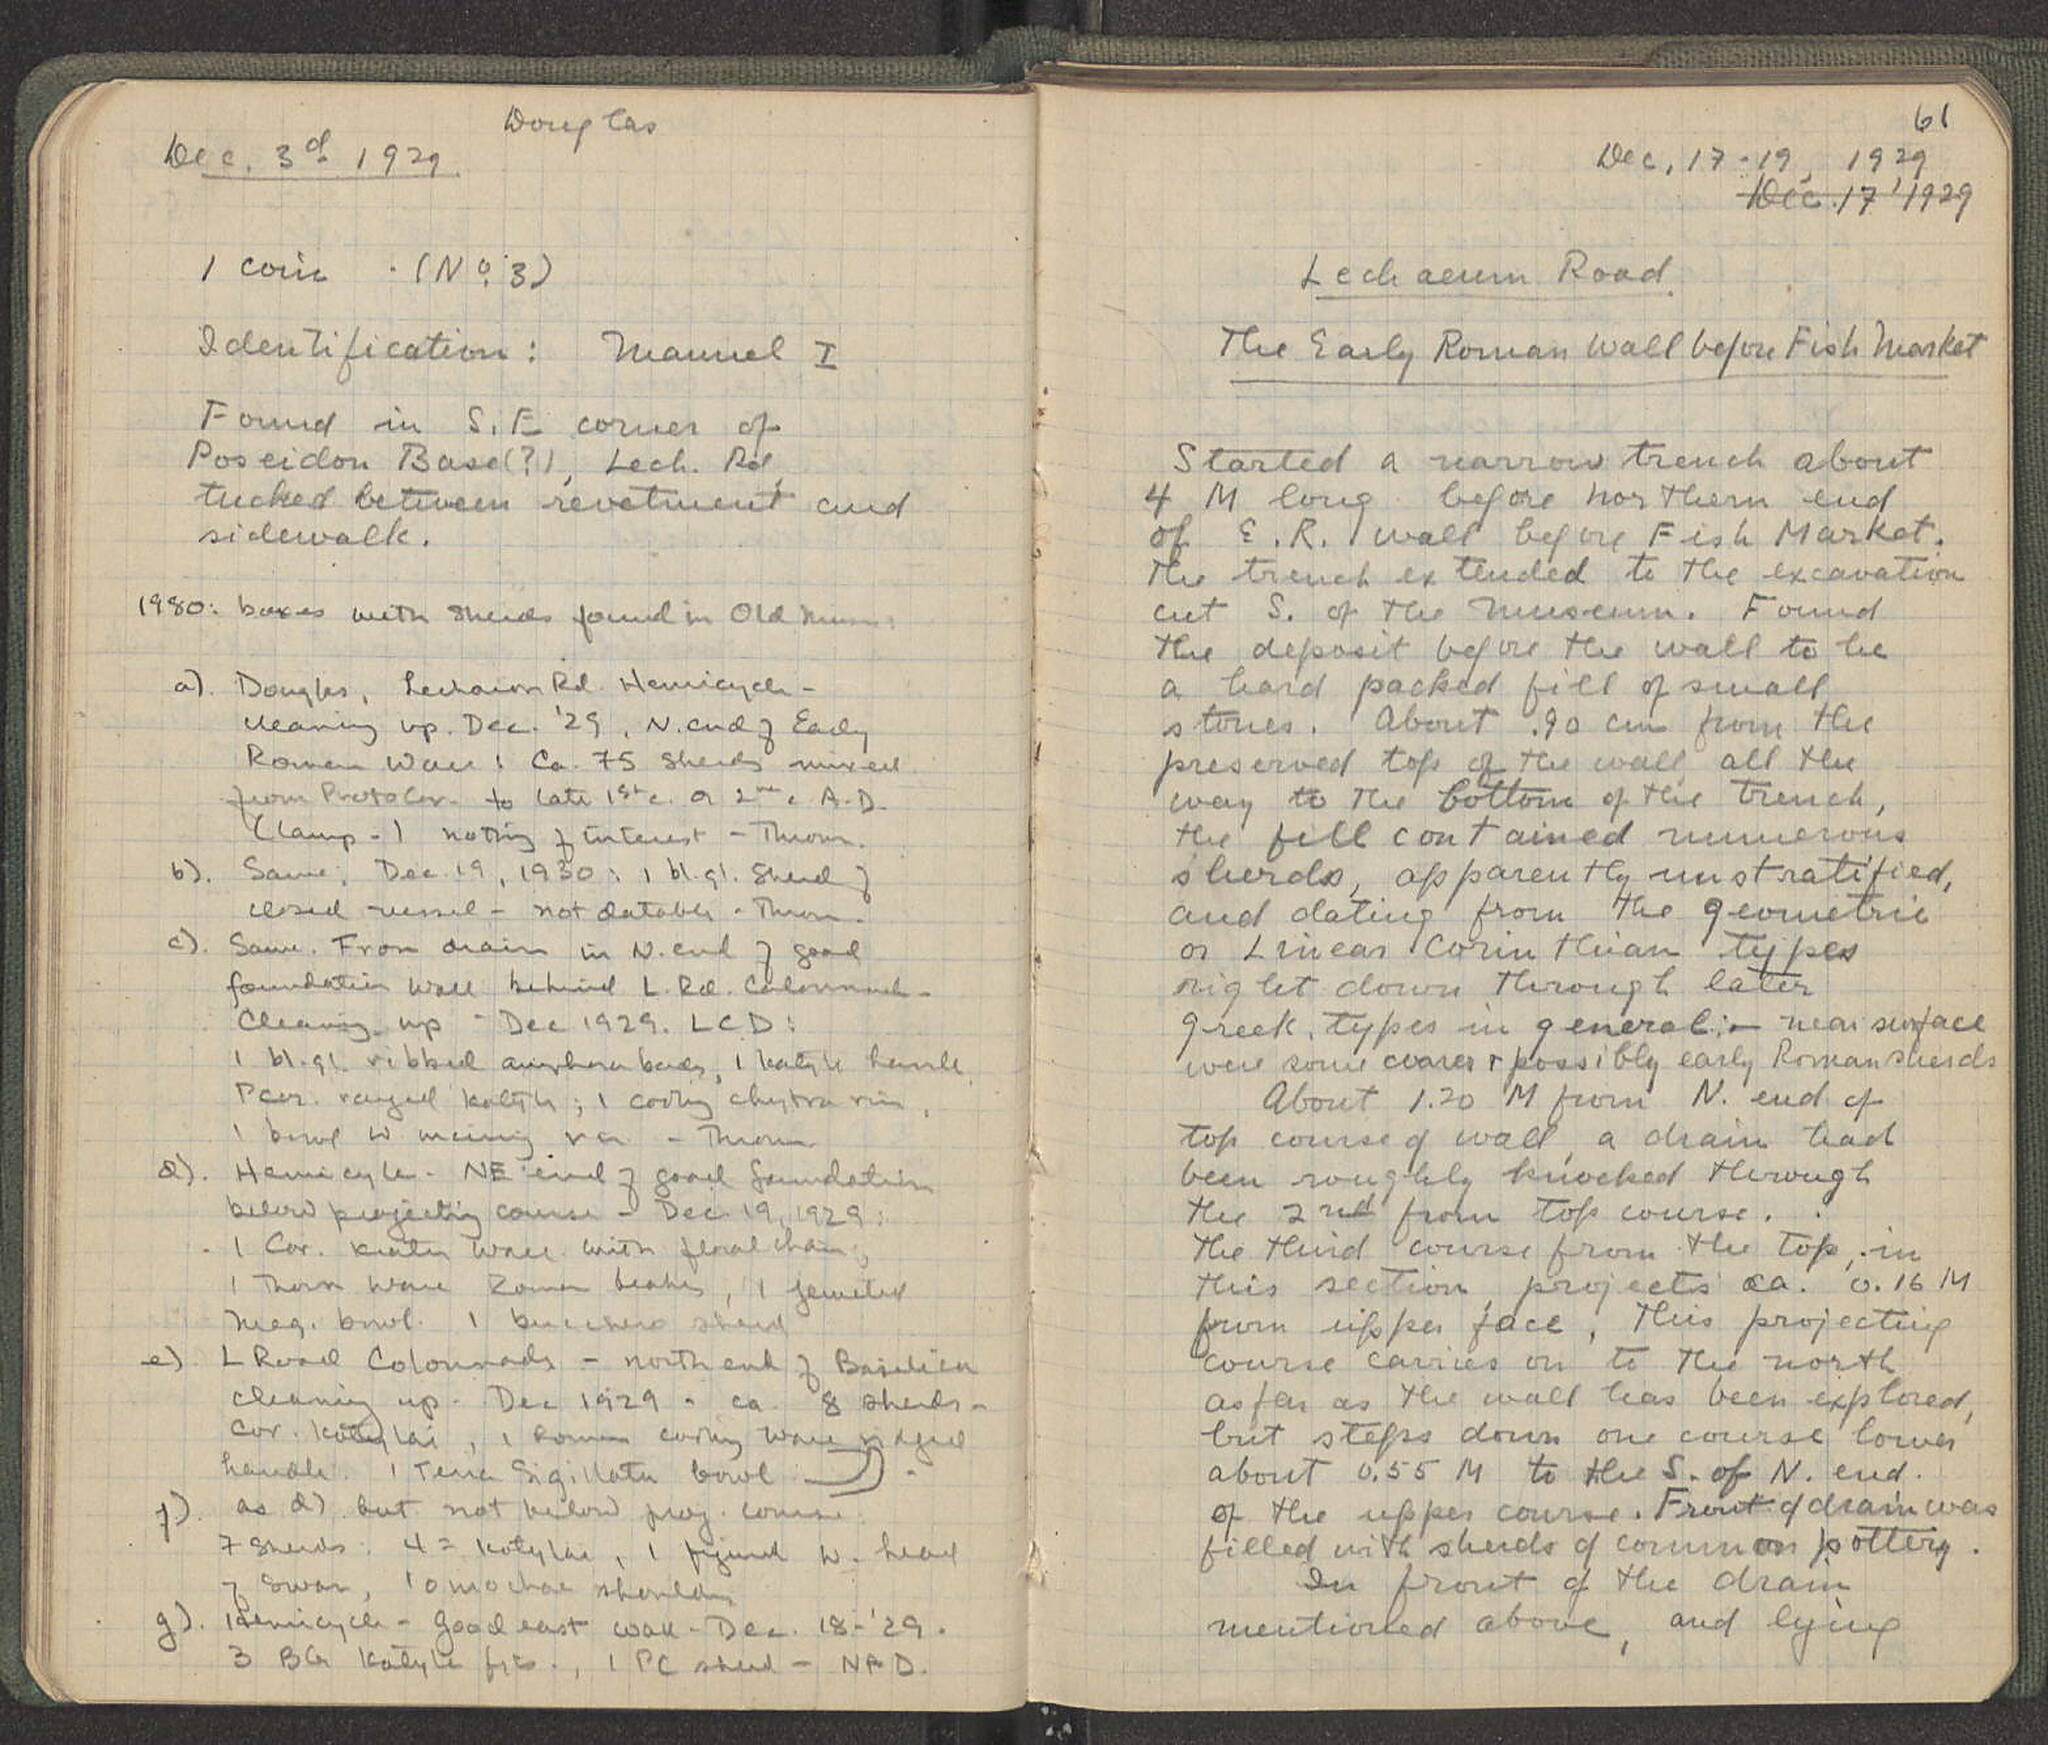 Douglas
Dec. 3d 1929
1 coin . (No. 3)
Identification: Manuel I
Found in S.E corner of
Poseidon Base(?), Lech. Rd
tucked between revetment and
sidewalk.
1980: boxes with sherds found in Old Mus:
a). Douglas, Lechaion Rd. Hemicycle -
cleaning up. Dec. '29, N. end of Early
Roman Wall: Ca. 75 sherds mixed
from ProtoCor. to late 1st c. or 2nd c. A.D.
(lamp-) nothing of interest - Thrown.
b). Same; Dec. 19, 1930: 1 bl.gl. sherd of
closed vessel - not datable - Thrown.
c). Same. From drain in N. end of good
foundation wall behind L. Rd. Colonnade -
Cleaning up - Dec 1929. LCD:
1 bl.gl. ribbed amphora body, 1 kotyle handle,
PCor. rayed kotyle; 1 cooking chytra rim,
1 bowl w - Thrown
d). Hemicycle - NE end of good foundation
below projecting course - Dec 19, 1929:
- 1 Cor. krater wall with floral chain,
1 Thorn Ware Roman beaker, 1
Meg. bowl. 1 bucchero sherd
e). L Road Colonnade - north end of Basilica
cleaning up - Dec 1929 - ca. 8 sherds -
Cor. kotylai, 1 Roman cooking ware ridged
handle. 1 Terra Sigillata bowl
f). as d) but not below proj. course.
7 sherds: 4 = kotylai, 1 figured w. head
of swan, 1 oinochoe shoulder
g). Hemicycle - Good east wall - Dec. 18-'29.
3 BG kotyle frs., 1 PC sherd - NAD.
61
Dec, 17-19, 1929
Dec. 17 '1929
Lechaeum Road
The Early Roman Wall before Fish Market
Started a narrow trench about
4 M long before northern end
of E.R. wall before Fish Market.
The trench extended to the excavation
cut S. of the Museum. Found
the deposit before the wall to be
a hard packed fill of small
stones. About .90 cm from the
preserved top of the wall all the
way to the bottom of the trench,
the fill contained numerous
sherds, apparently unstratified,
and dating from the geometric
or Linear Corinthian types
right down through later
greek types in general:- near surface
were some coarse & possibly early Roman sherds
About 1.20 M from N. end of
top course of wall, a drain had
been roughly knocked through
the 2nd from top course.
The third course from the top, in
this section, projects ca. 0.16 M
from upper face, this projecting
course carries on to the north
as far as the wall has been explored,
but steps down one course lower
about 0.55 M to the S. of N. end.
of the upper course. Front of drain was
filled with sherds of common pottery.
In front of the drain
mentioned above, and lying